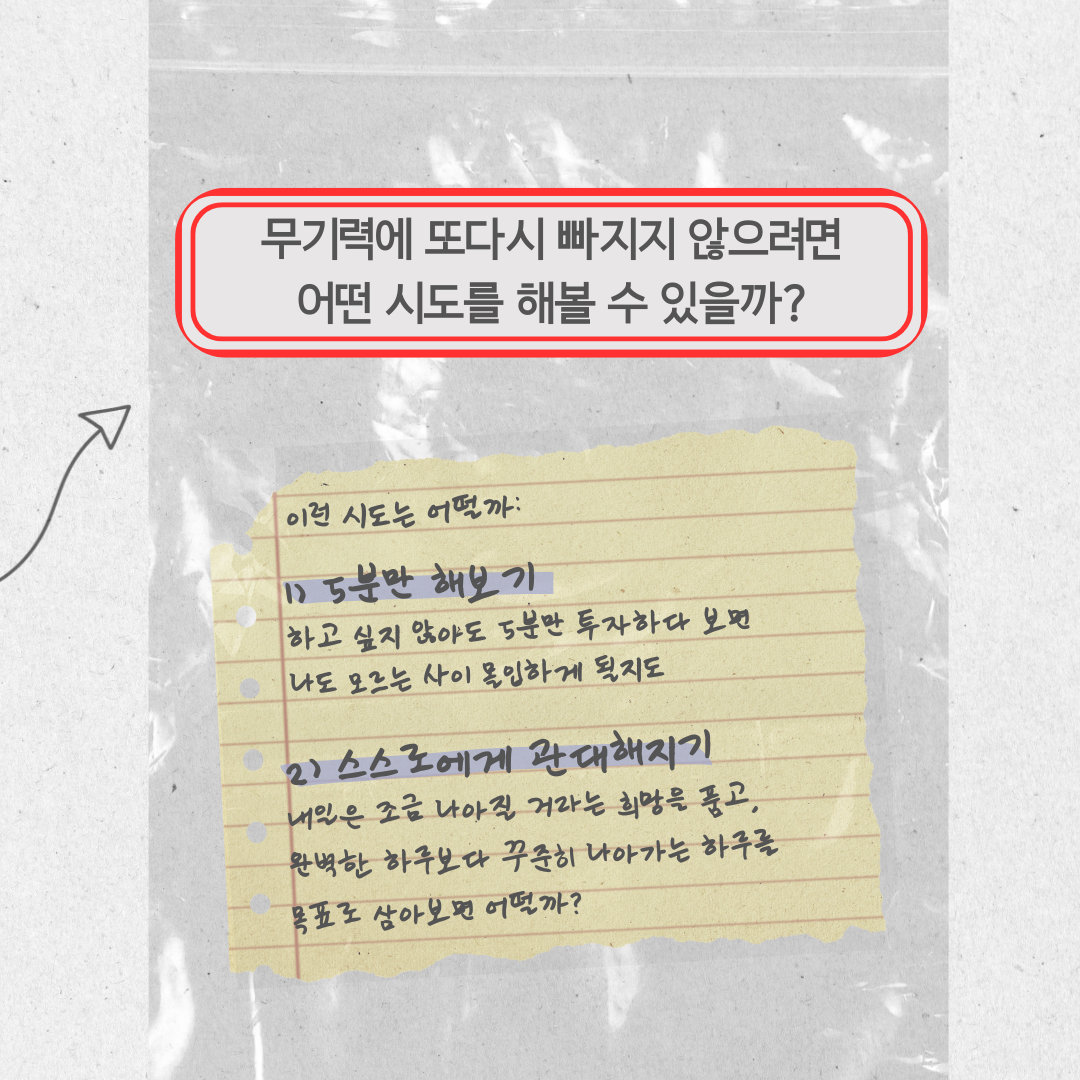 무기력에 또다시 빠지지 않으려면
어떤 시도를 해볼 수 있을까?
이런 시도는 어떨까:
1) 5분만 해보기
하고 싶지 않아도 5분만 투자하다 보면
나도 모르는 사이 몰입하게 될지도
2) 스스로에게 관대해지기
내일은 조금 나아질 거라는 희망을 품고,
완벽한 하루보다 꾸준히 나아가는 하루를
목표로 삼아보면 어떨까?